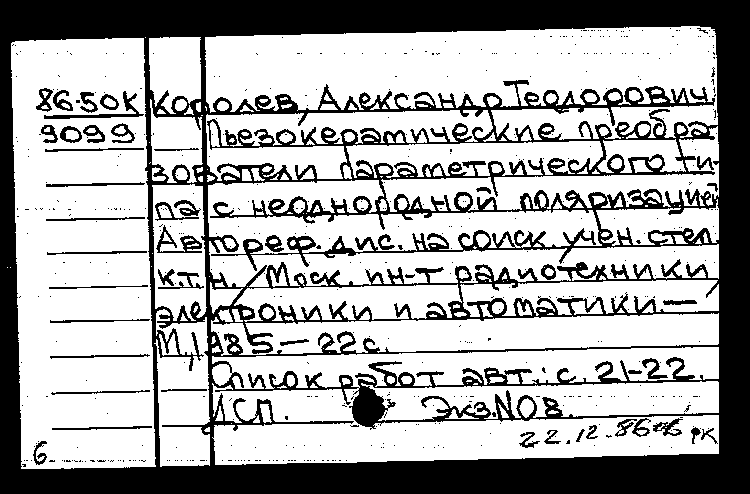 86-50К Королев, Александр Теодорович.
9099 Пьезокерамические преобра-
зователи параметрического ти-
па с неоднородной поляризацией
Автореф. дис. на соиск. учен. степ.
к.т.н. / Моск. ин-т радиотехники,
электроники и автоматики. —
М., 1985. — 22 с.
Список работ авт.: с. 21-22.
ДСП. Экз. № 08.
22.12.86
6